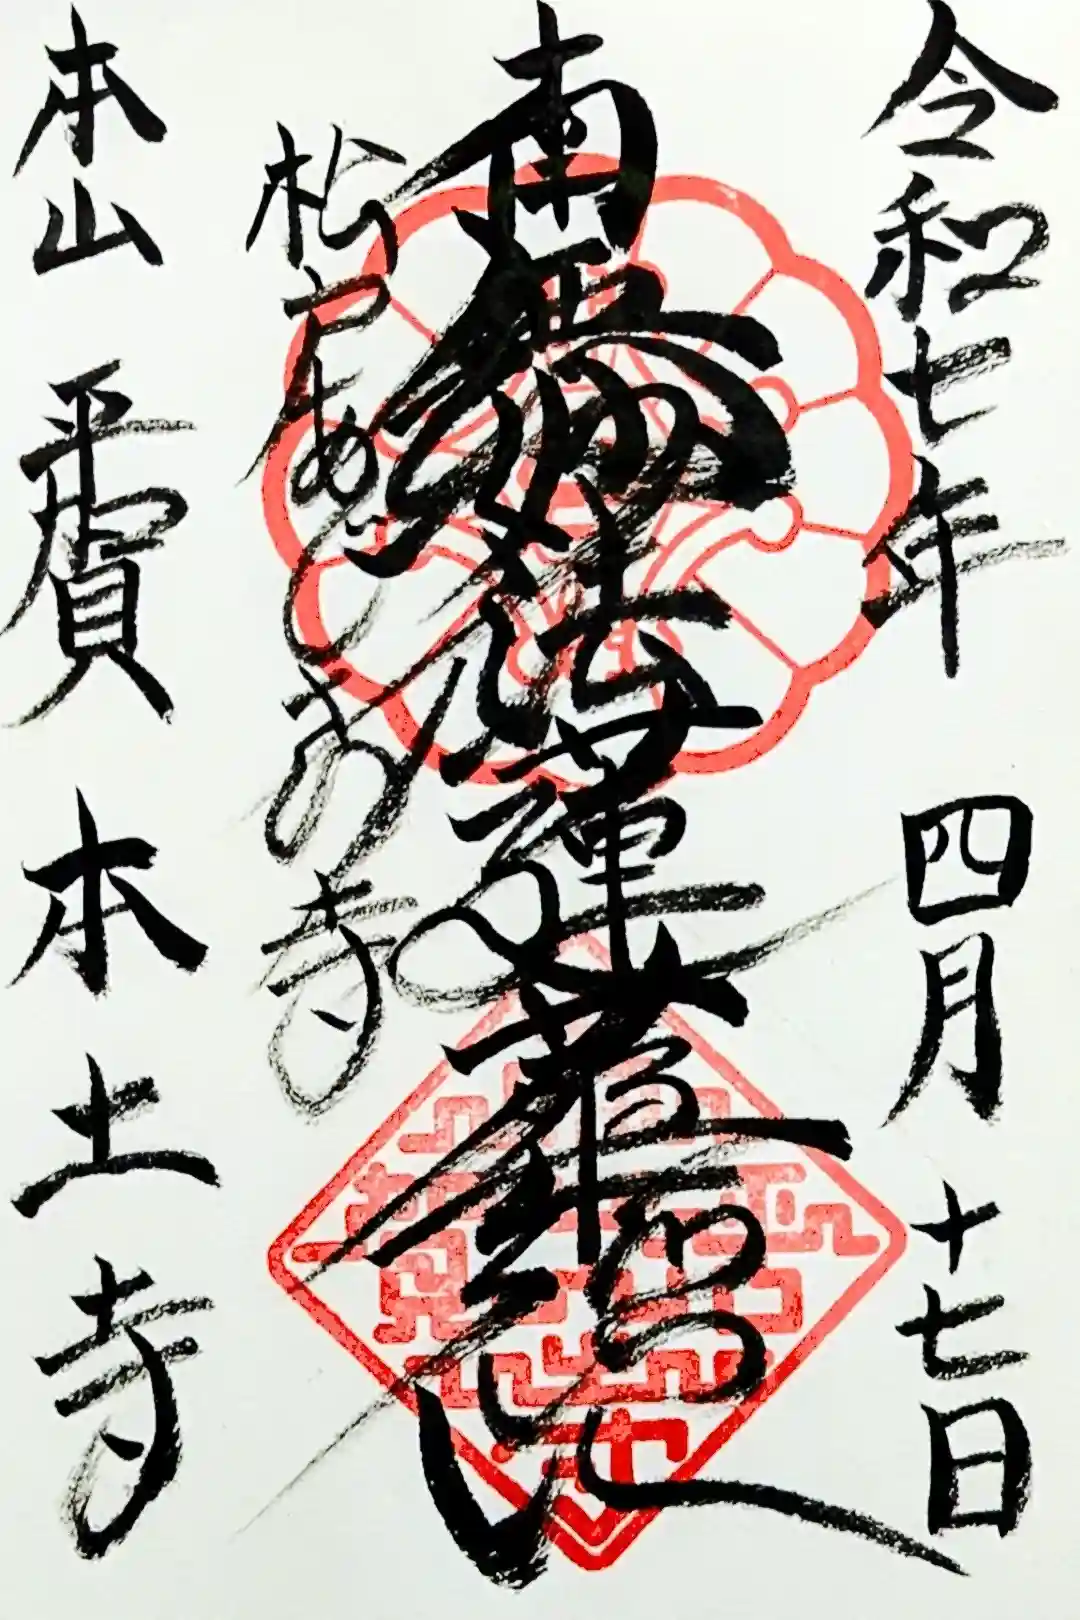 令和七年 四月十七日
南無妙法蓮華経
松戸あじさい寺
本山 平賀 本土寺